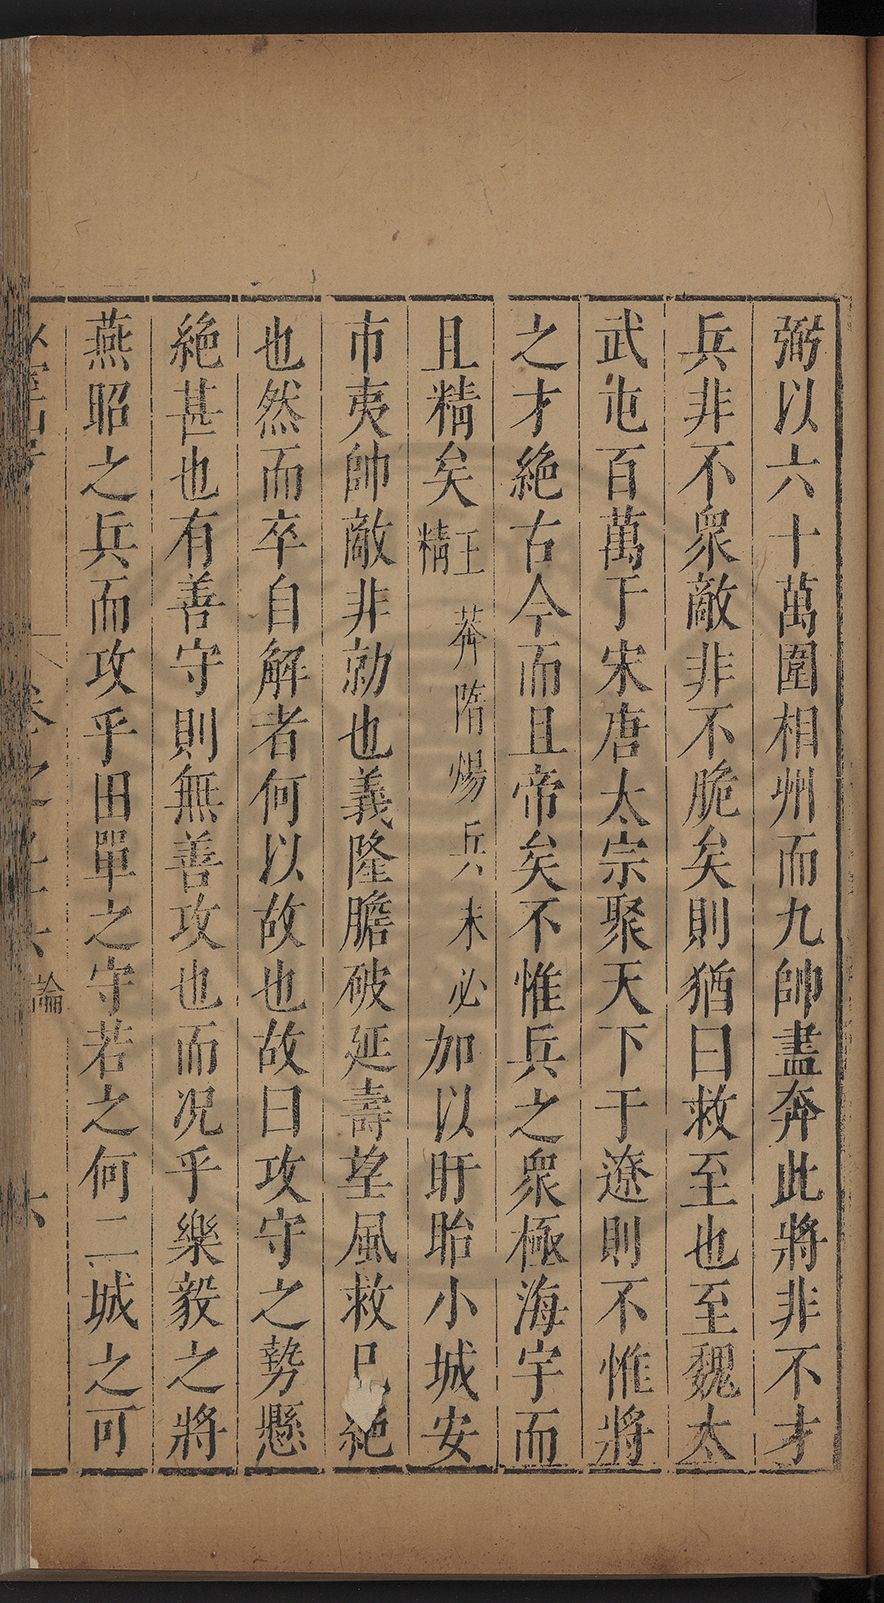 弼以六十萬圍相州而九帥盡奔此將非不才
兵非不衆敵非不脆矣則猶曰救至也至魏太
武屯百萬于宋唐太宗聚天下于遼則不惟將
之才絕古今而且帝矣不惟兵之衆極海宇而
且精矣王莽隋煬兵未必精加以盱眙小城安
市夷帥敵非勍也義隆膽破延壽望風救已絕
也然而卒自解者何以故也故曰攻守之勢懸
絕甚也有善守則無善攻也而况乎樂毅之將
燕昭之兵而攻乎田單之守若之何二城之可
卷之 論
六